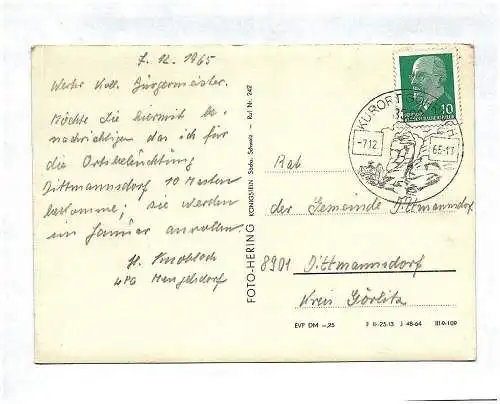 7. 12. 1965
Werter Koll. Bürgermeister.
Möchte Sie hiermit be-
nachrichtigen das ich für
die Ortsbeleuchtung
Dittmannsdorf 10 Masten
bekomme; sie werden
im Januar anrollen.
H. Knobloch
LPG Mengelsdorf
FOTO-HERING KÖNIGSTEIN Sächs. Schweiz - Ruf Nr. 242
10
KURORT
-7.12. 65.-17
Rat
der Gemeinde Dittmannsdorf
8901 Dittmannsdorf
Kreis Görlitz
EVP DM -,25 J 48-64 III-9-109